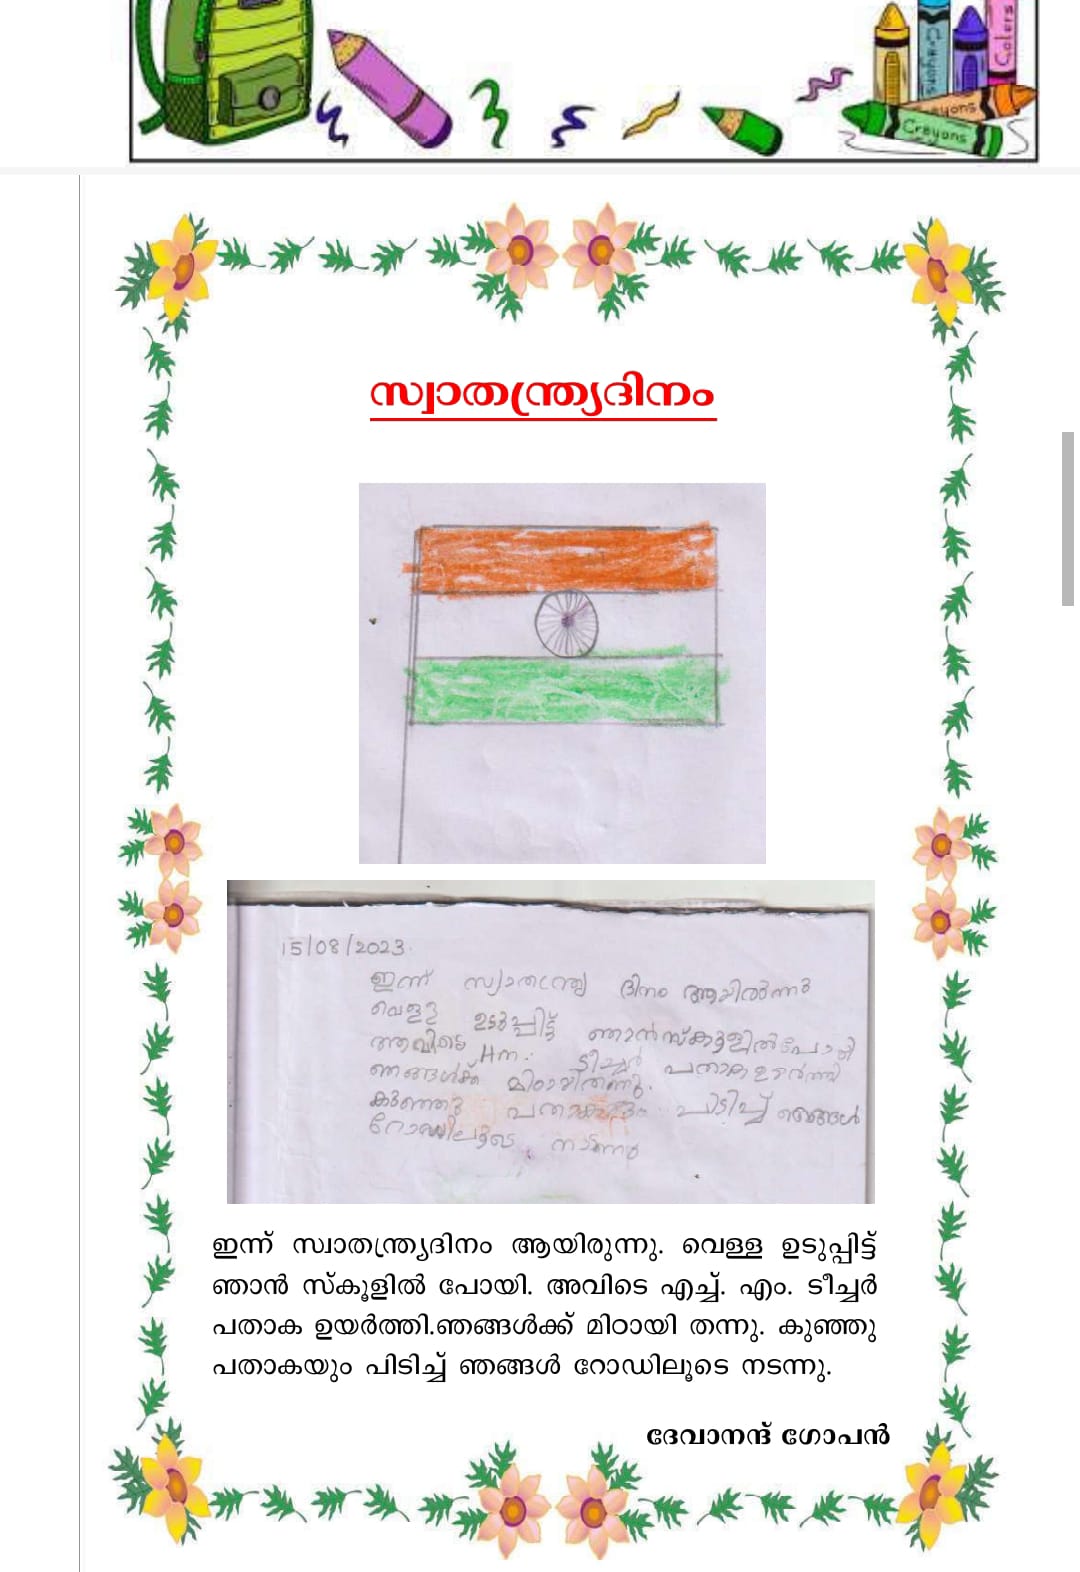 Crayons
Colors
Crayons
Crayons
സ്വാതന്ത്ര്യദിനം
15/08/2023.
ഇന്ന് സ്വാതന്ത്ര്യ ദിനം ആയിരുന്നു
വെള്ള ഉടുപ്പിട്ട് ഞാൻ സ്കൂളിൽ പോയി
അവിടെ Hm. ടീച്ചർ പതാക ഉയർത്തി
ഞങ്ങൾക്ക് മിഠായി തന്നു.
കുഞ്ഞു പതാകയും പിടിച്ച് ഞങ്ങൾ
റോഡിലൂടെ നടന്നു
ഇന്ന് സ്വാതന്ത്ര്യദിനം ആയിരുന്നു. വെള്ള ഉടുപ്പിട്ട്
ഞാൻ സ്കൂളിൽ പോയി. അവിടെ എച്ച്. എം. ടീച്ചർ
പതാക ഉയർത്തി.ഞങ്ങൾക്ക് മിഠായി തന്നു. കുഞ്ഞു
പതാകയും പിടിച്ച് ഞങ്ങൾ റോഡിലൂടെ നടന്നു.
ദേവാനന്ദ് ഗോപൻ